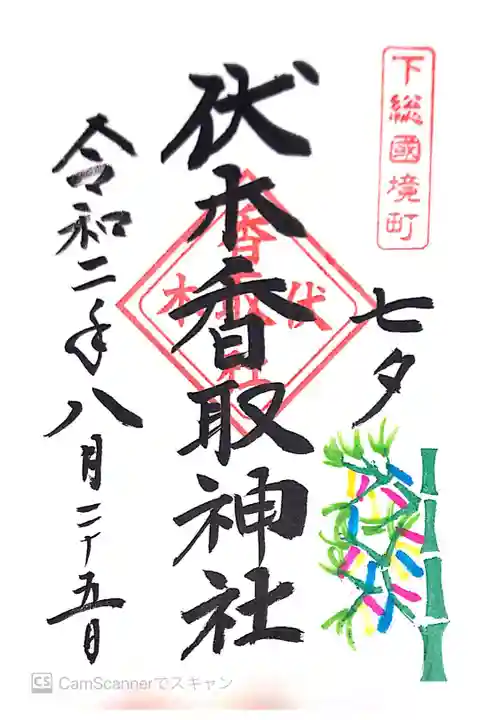 下総國境町
七夕
伏木香取神社
伏木香取神社
令和二年八月二十五日
CS CamScannerでスキャン